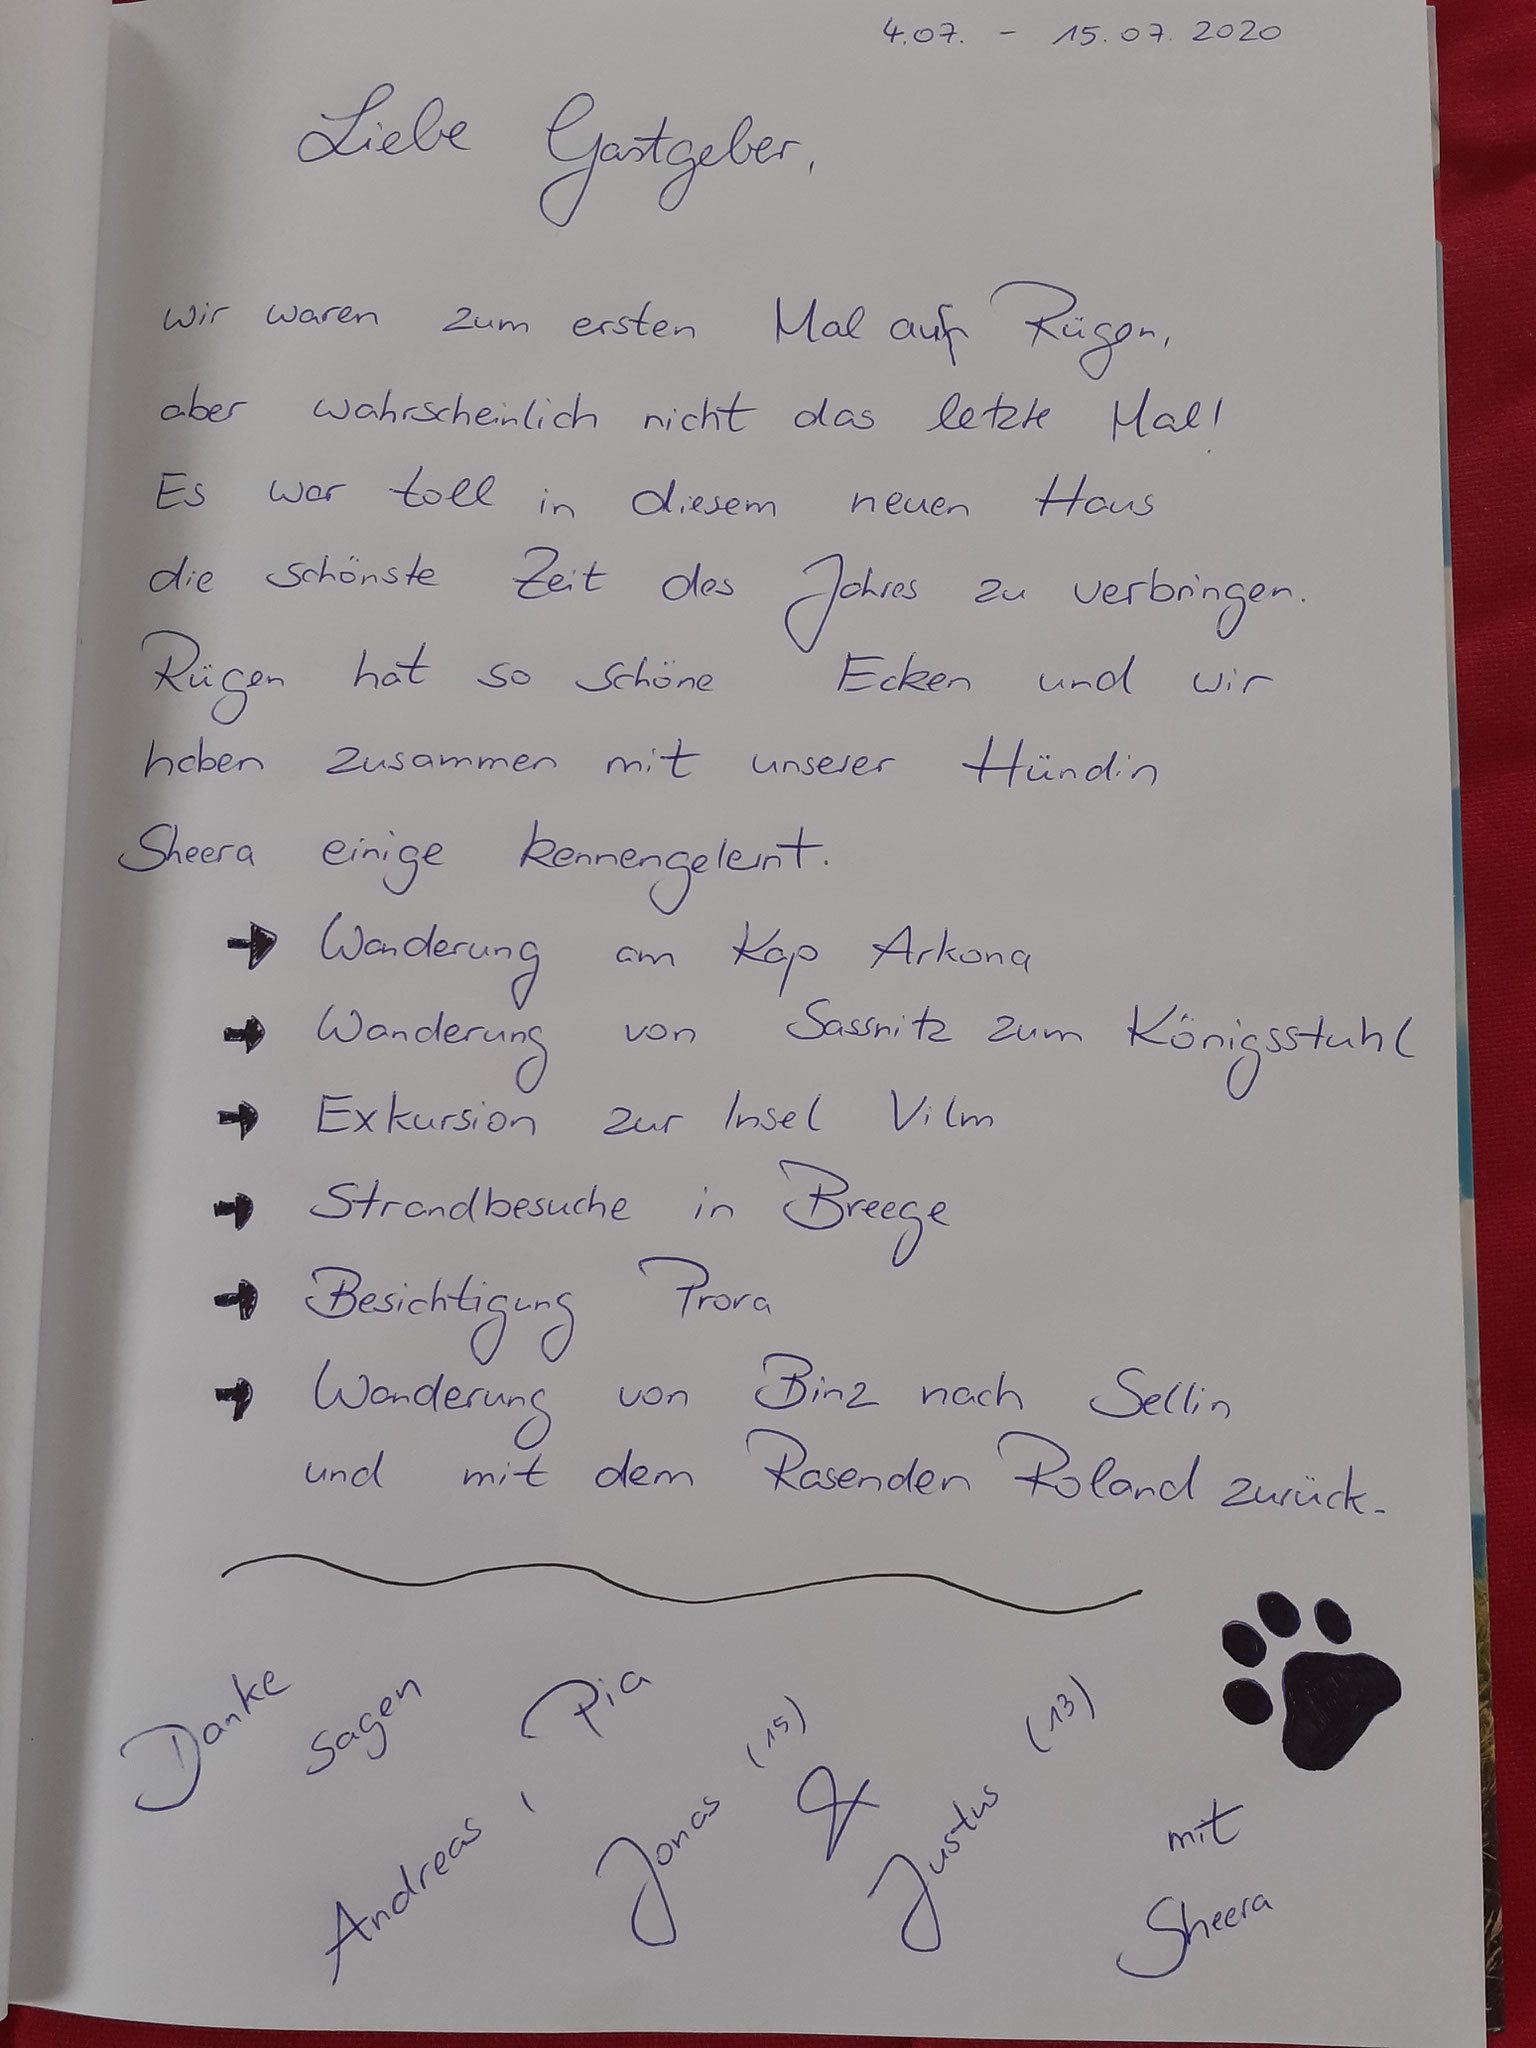 4.07. - 15.07.2020
Liebe Gastgeber,
wir waren zum ersten Mal auf Rügen,
aber wahrscheinlich nicht das letzte Mal!
Es war toll in diesem neuen Haus
die schönste Zeit des Jahres zu verbringen.
Rügen hat so schöne Ecken und wir
haben zusammen mit unserer Hündin
Sheera einige kennengelernt.
➔ Wanderung am Kap Arkona
➔ Wanderung von Sassnitz zum Königsstuhl
➔ Exkursion zur Insel Vilm
➔ Strandbesuche in Breege
➔ Besichtigung Prora
➔ Wanderung von Binz nach Sellin
und mit dem Rasenden Roland zurück.
Danke sagen
Andreas, Pia
Jonas (15) & Justus (13)
mit
Sheera